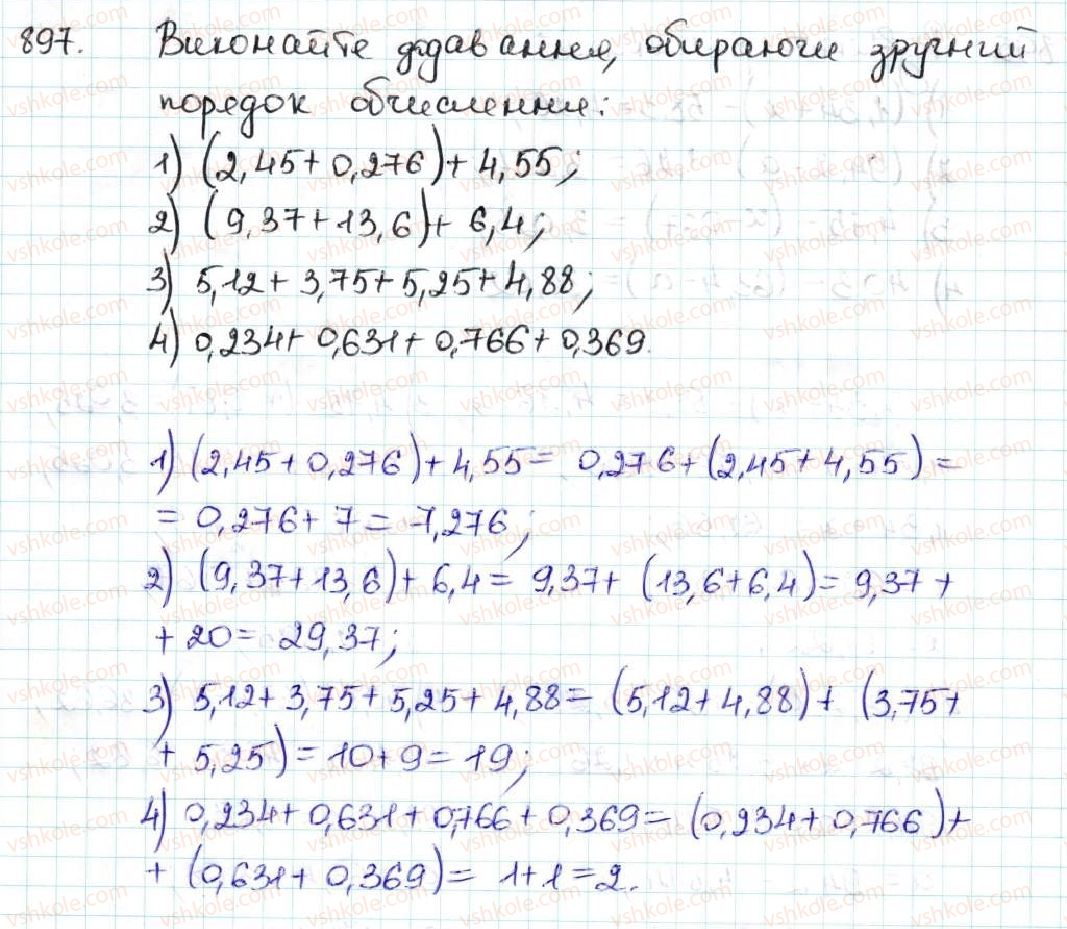 897. Виконайте додавання, обираючи зручний
порядок обчислення:
1) (2,45+0,276)+4,55;
2) (9,37+13,6)+6,4;
3) 5,12+3,75+5,25+4,88;
4) 0,234+0,631+0,766+0,369.
1) (2,45+0,276)+4,55= 0,276+(2,45+4,55)=
= 0,276+7=7,276;
2) (9,37+13,6)+6,4= 9,37+ (13,6+6,4)= 9,37+
+20= 29,37;
3) 5,12+3,75+5,25+4,88= (5,12+4,88)+ (3,75+
+ 5,25)=10+9=19;
4) 0,234+0,631+0,766+0,369= (0,234+0,766)+
+ (0,631+0,369)= 1+1=2.
vshkole.com